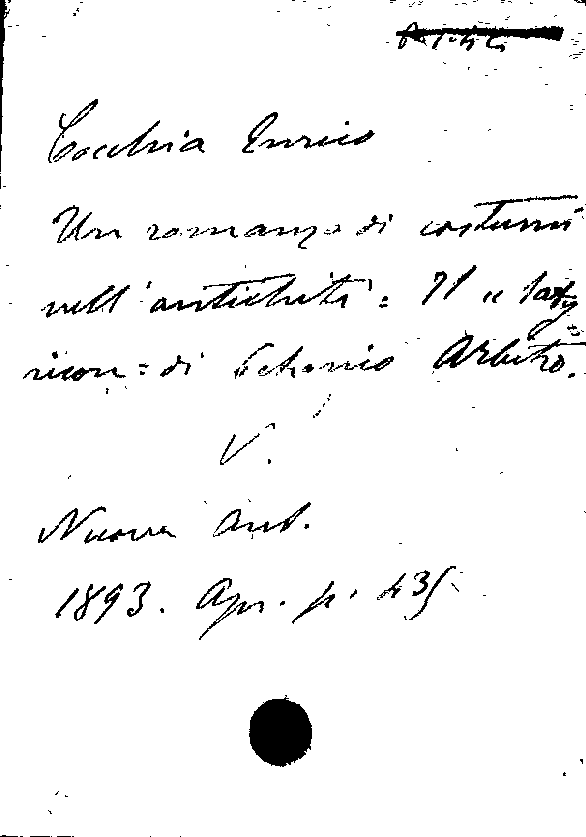 Cocchia Enrico
Un romanzo di costumi
nell'antichità: Il "Saty
ricon" di Petronio Arbitro.
V.
Nuova Ant.
1893. Apr. p. 435